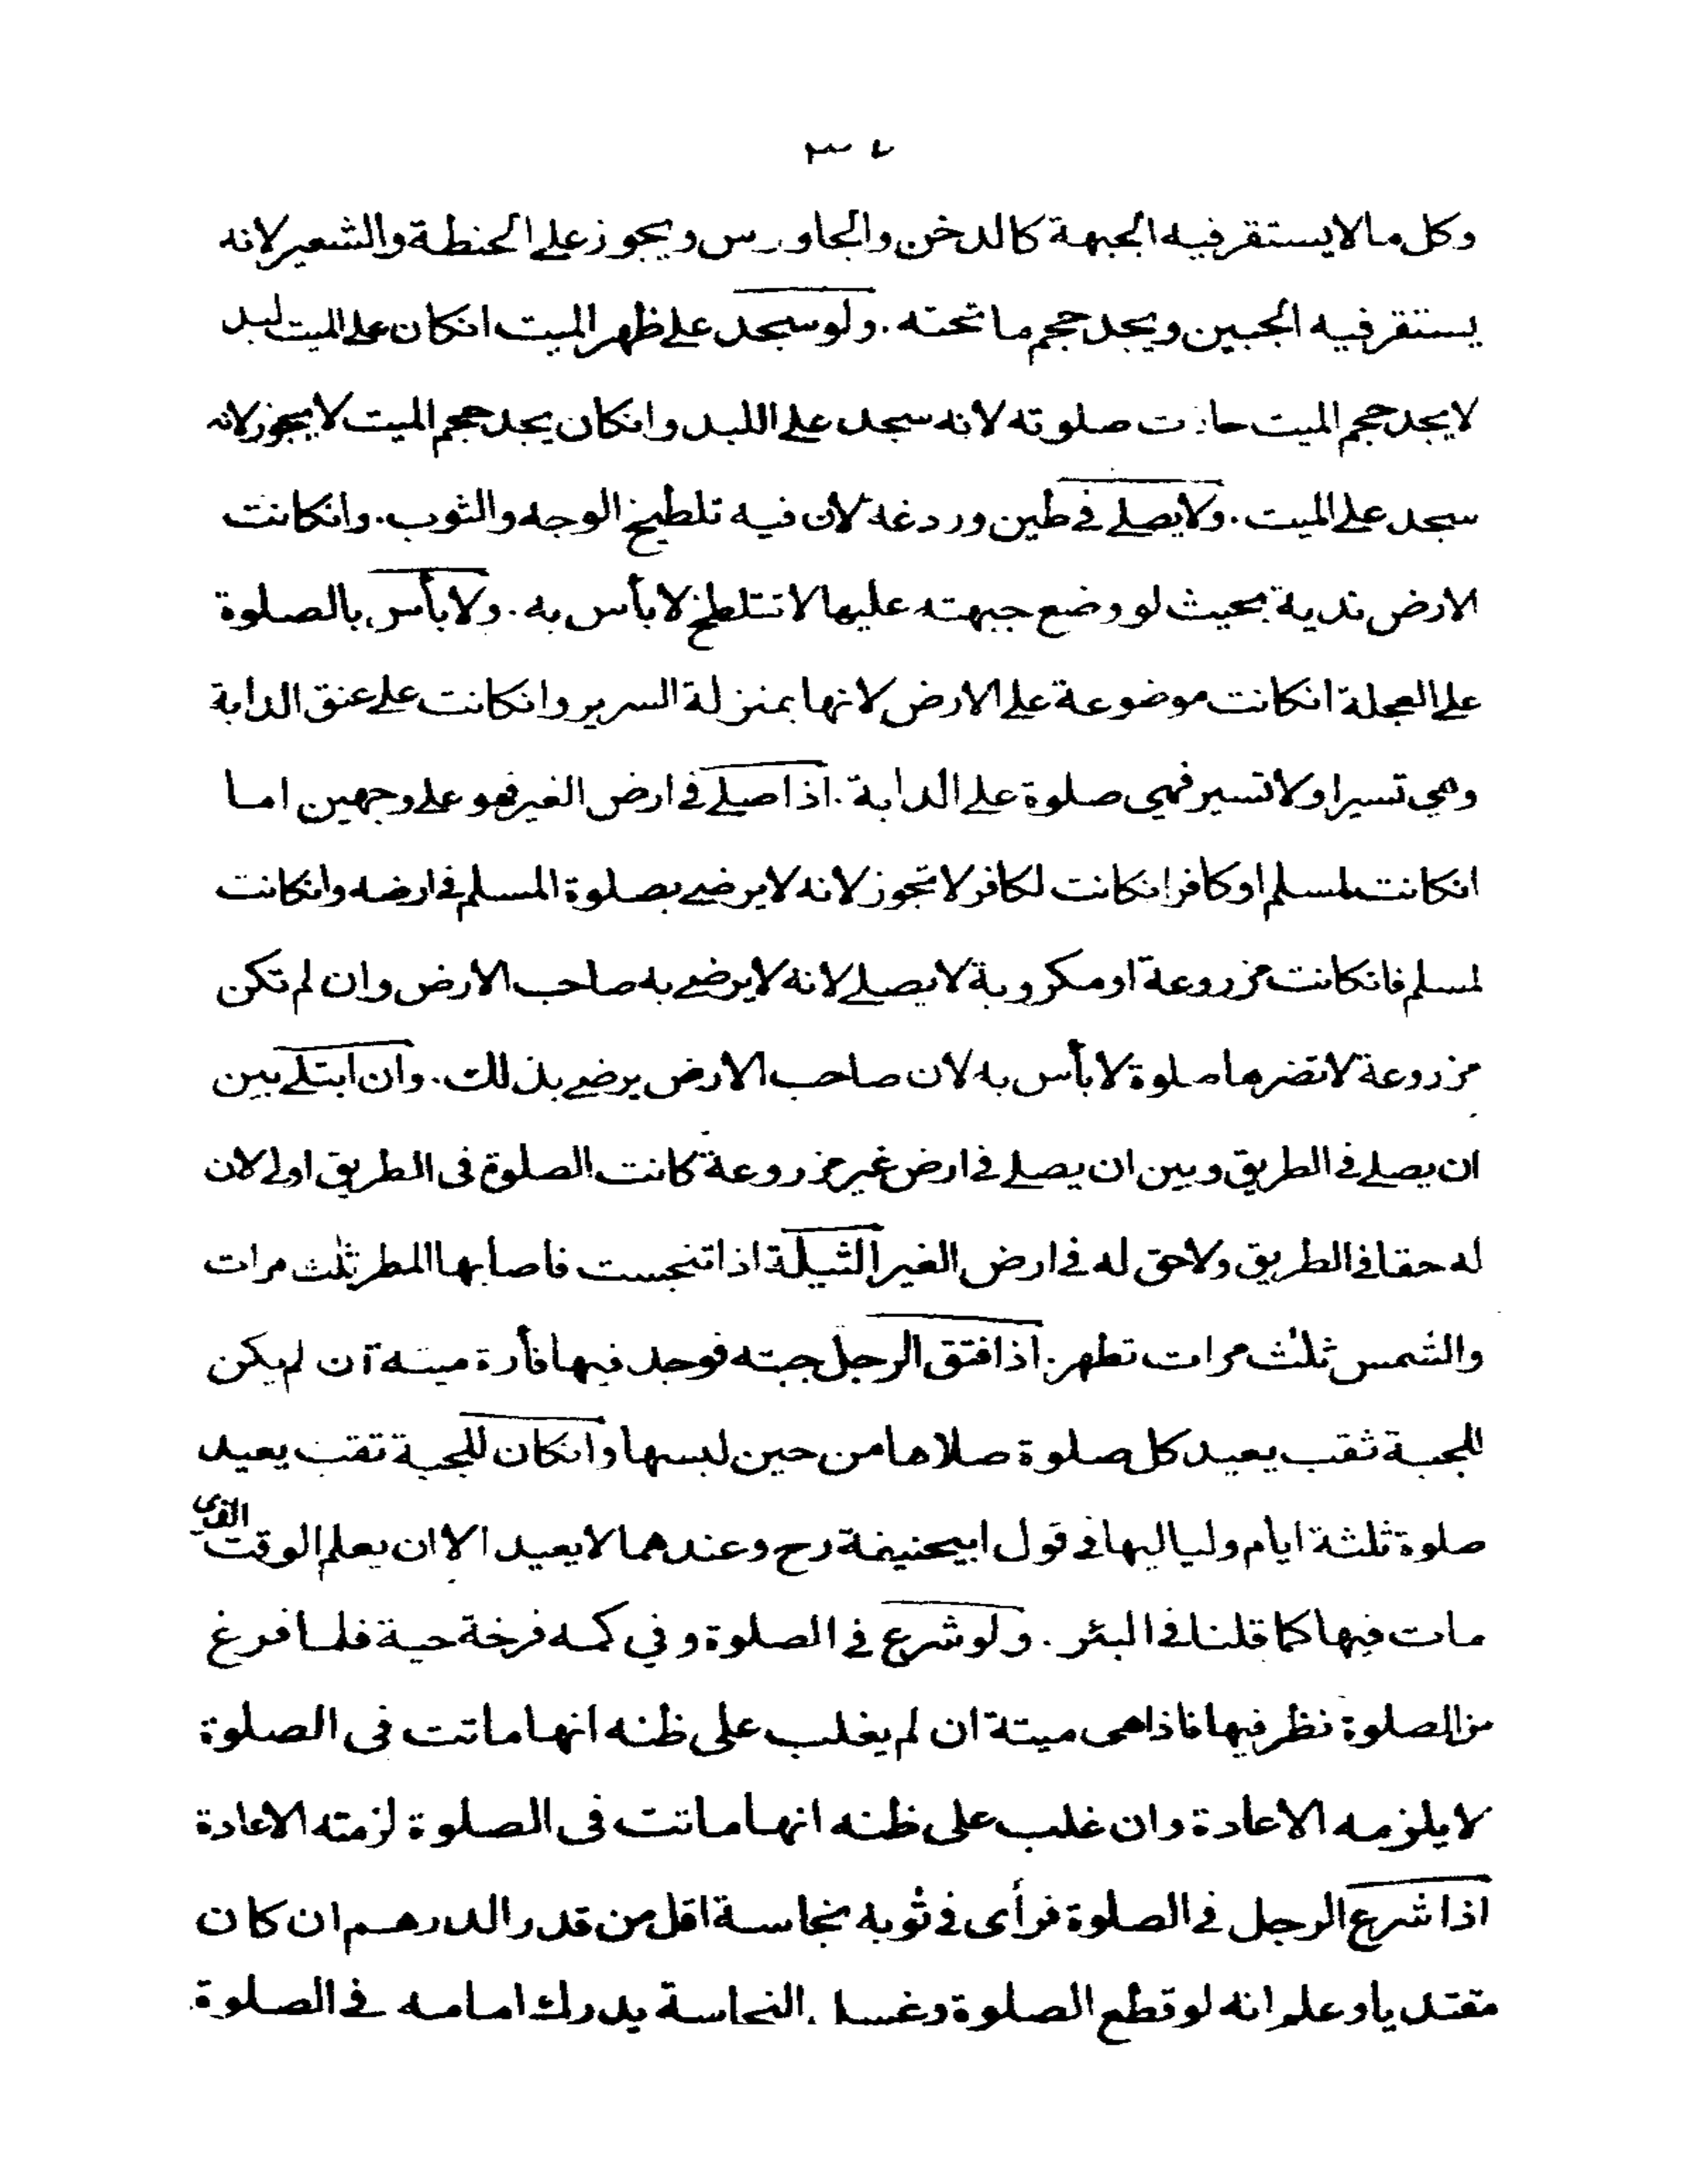 وكل مالا يستقر فيه الجبهة كالدخن والجاورس ويجوز على الحنطة والشعير لانه
يستقر فيه الجبين ويجد حجم ما تحته . ولو سجد على ظهر الميت انكان على الميت لبد
لا يجد حجم الميت جازت صلوته لانه سجد على اللبد وانكان يجد حجم الميت لا يجوز لانه
سجد على الميت . ولا يصلى فى طين وردغه لان فيه تلطيخ الوجه والثوب . وانكانت
الارض ندية بحيث لو وضع جبهته عليها لا تتلطخ لا بأس به . ولا بأس بالصلوة
على العجلة انكانت موضوعة على الارض لانها بمنزلة السرير وانكانت على عنق الدابة
وهي تسير او لا تسير فهي صلوة على الدابة . اذا صلى فى ارض الغير فهو على وجهين اما
انكانت لمسلم او كافر انكانت لكافر لا تجوز لانه لا يرضى بصلوة المسلم فى ارضه وانكانت
لمسلم فانكانت مزروعة او مكروبة لا يصلى لانه لا يرضى به صاحب الارض وان لم تكن
مزروعة لا تضرها صلوة لا بأس به لان صاحب الارض يرضى بذلك . وان ابتلى بين
ان يصلى فى الطريق وبين ان يصلى فى ارض غير مزروعة كانت الصلوة فى الطريق اولى لان
له حقا فى الطريق ولا حق له فى ارض الغير الثيلة اذا تنجست فاصابها المطر ثلث مرات
والشمس ثلث مرات تطهر . اذا فتق الرجل جبته فوجد فيها فأرة ميتة ان لم يكن
للجبة ثقب يعيد كل صلوة صلاها من حين لبسها وانكان للجبة ثقب يعيد
صلوة ثلثة ايام ولياليها فى قول ابيحنيفة رح وعندهما لا يعيد الا ان يعلم الوقت الذى
مات فيها كما قلنا فى البئر . ولو شرع فى الصلوة وفي كمه فرخة حية فلما فرغ
من الصلوة نظر فيها فاذا هى ميتة ان لم يغلب على ظنه انها ماتت فى الصلوة
لا يلزمه الاعادة وان غلب على ظنه انها ماتت فى الصلوة لزمته الاعادة
اذا شرع الرجل فى الصلوة فرأى فى ثوبه نجاسة اقل من قدر الدرهم ان كان
مقتديا وعلم انه لو قطع الصلوة وغسل النجاسة يدرك امامه فى الصلوة